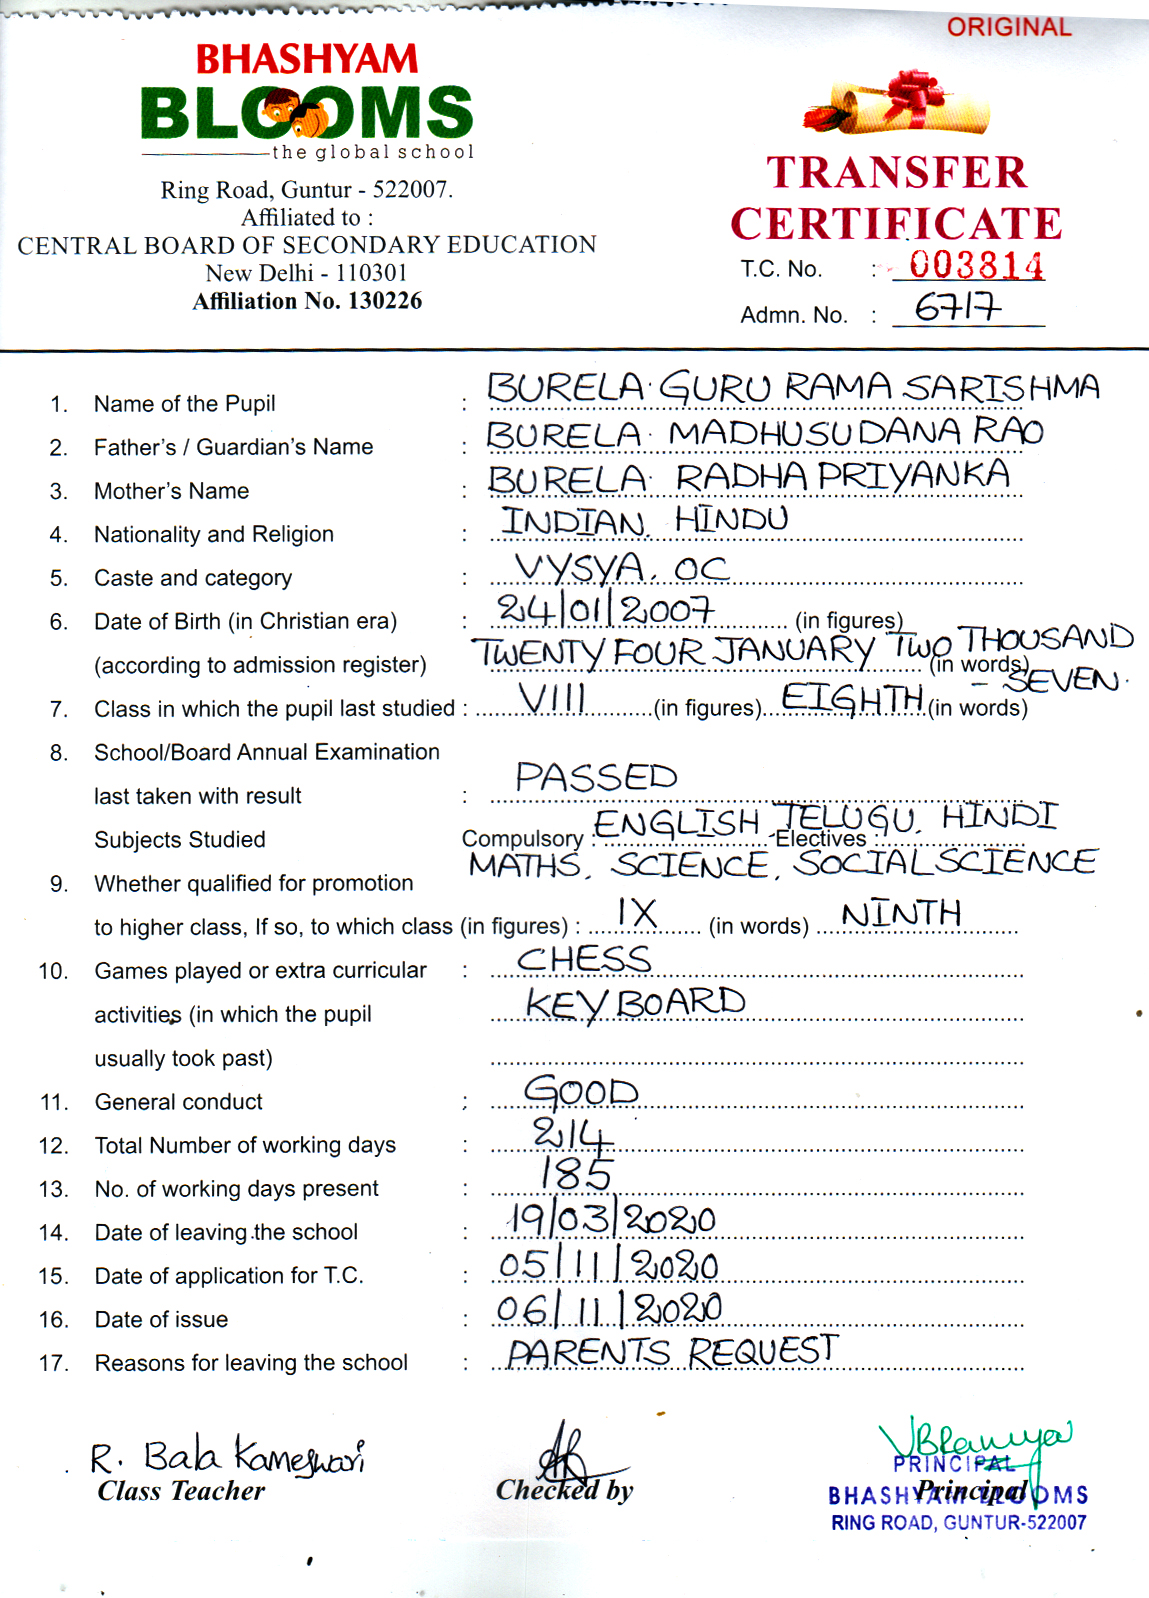 ORIGINAL
BHASHYAM
BLOOMS
the global school
Ring Road, Guntur - 522007.
Affiliated to :
CENTRAL BOARD OF SECONDARY EDUCATION
New Delhi - 110301
Affiliation No. 130226
TRANSFER
CERTIFICATE
T.C. No. : 003814
Admn. No. : 6717
1. Name of the Pupil : BURELA. GURU RAMA SARISHMA
2. Father's / Guardian's Name : BURELA. MADHUSUDANA RAO
3. Mother's Name : BURELA. RADHA PRIYANKA
4. Nationality and Religion : INDIAN, HINDU
5. Caste and category : VYSYA, OC
6. Date of Birth (in Christian era) : 24/01/2007 (in figures)
(according to admission register) TWENTY FOUR JANUARY TWO THOUSAND (in words)
- SEVEN.
7. Class in which the pupil last studied : VIII (in figures) EIGHTH (in words)
8. School/Board Annual Examination
last taken with result : PASSED
Subjects Studied Compulsory : ENGLISH TELUGU, HINDI Electives :
MATHS, SCIENCE, SOCIAL SCIENCE
9. Whether qualified for promotion
to higher class, If so, to which class (in figures) : IX (in words) NINTH
10. Games played or extra curricular : CHESS
activities (in which the pupil KEY BOARD
usually took past)
11. General conduct : GOOD
12. Total Number of working days : 214
13. No. of working days present : 185
14. Date of leaving the school : 19/03/2020
15. Date of application for T.C. : 05/11/2020
16. Date of issue : 06/11/2020
17. Reasons for leaving the school : PARENTS REQUEST
R. Bala Kameswari
Class Teacher
Checked by
PRINCIPAL
Principal
BHASHYAM BLOOMS
RING ROAD, GUNTUR-522007